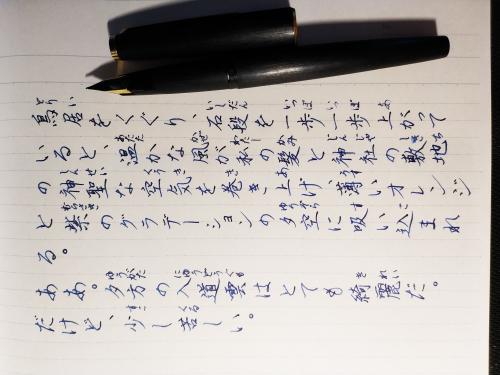 鳥居をくぐり、石段を一歩一歩上がって
いると、温かな風が私の髪と神社の敷地
の神聖な空気を巻き上げ、薄いオレンジ
と紫のグラデーションの夕空に吸い込まれ
る。
ああ。夕方の入道雲はとても綺麗だ。
だけど、少し苦しい。